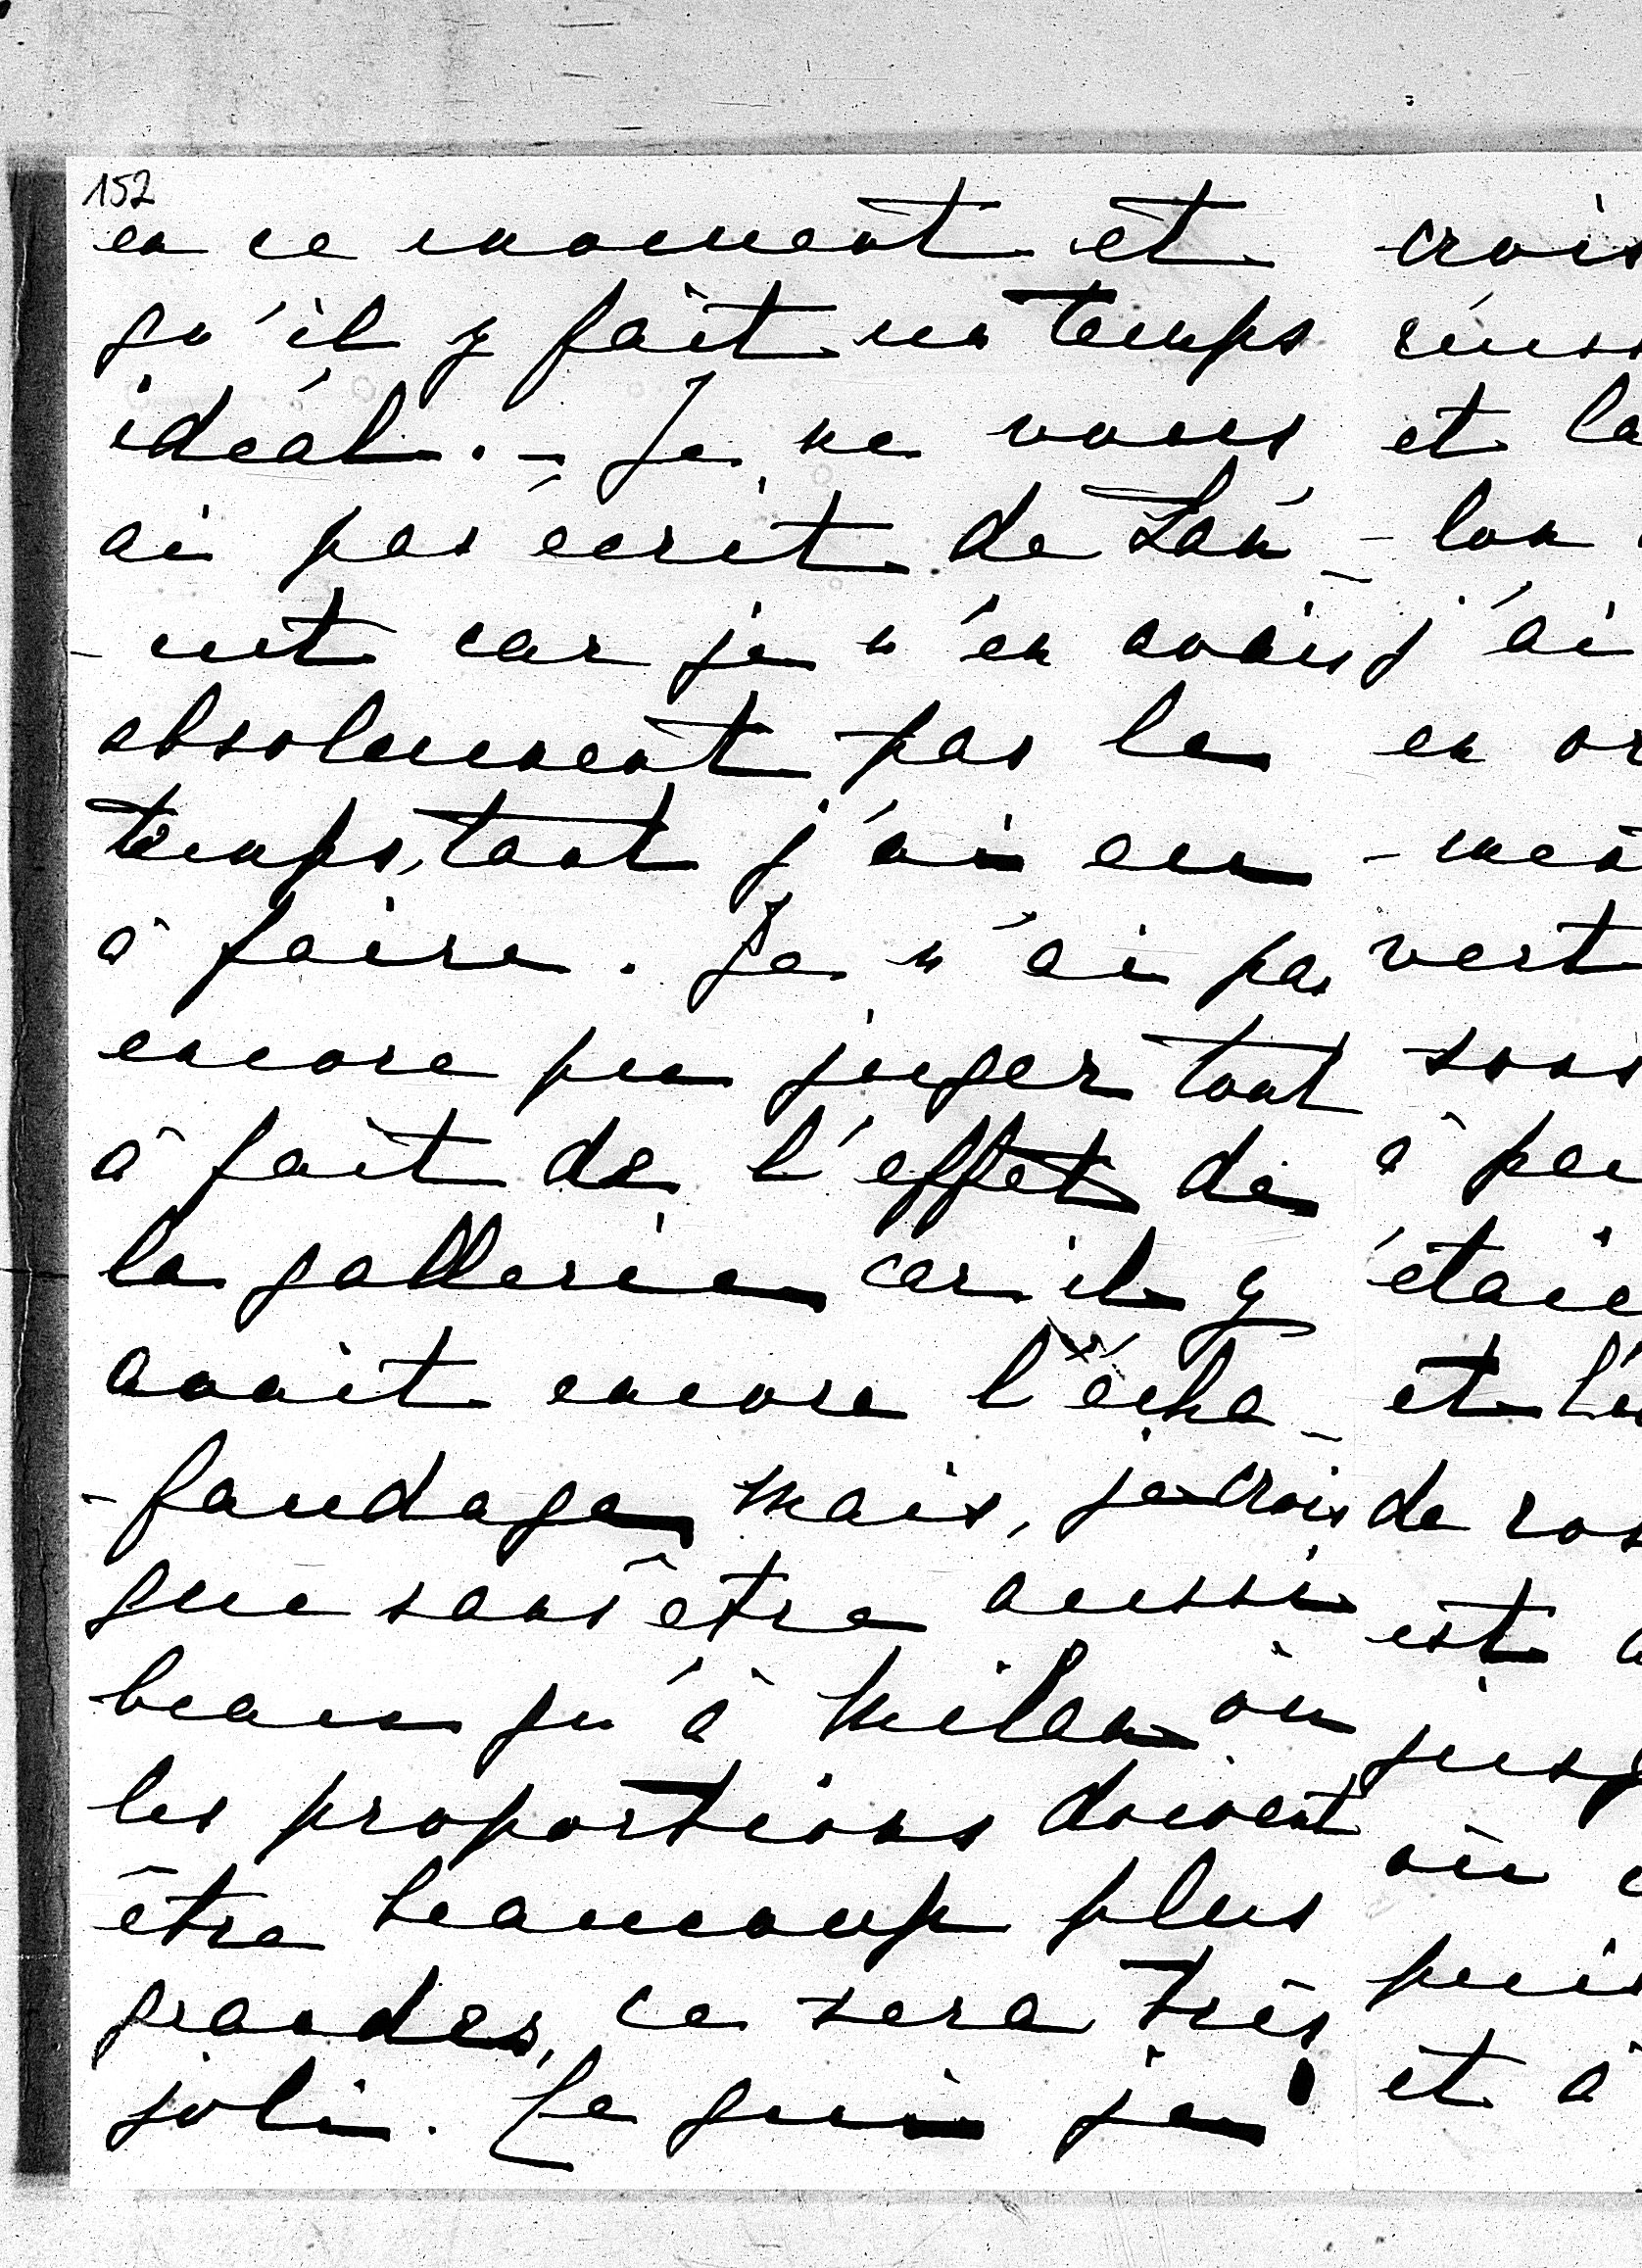 152
en ce moment et
qu'il y fait un temps
idéal. - Je ne vous
ai pas écrit de Laü-
-ut car je n'en avais
absolument pas le
temps, tant j'ai eu
à faire. Je n'ai pas
encore pu juger tout
à fait de l'effet de
la gallerie car il y
avait encore l'écha-
-faudage mais, je crois
que sans être aussi
beau qu'à Milan où
les proportions doivent
être beaucoup plus
grandes, ce sera très
joli. Ce qui je
crois
réuss
et la
lon
j'ai
en or
-men
vert
sous
à peu
étaie
et l'e
de ros
est a
jusq
où
puis
et à